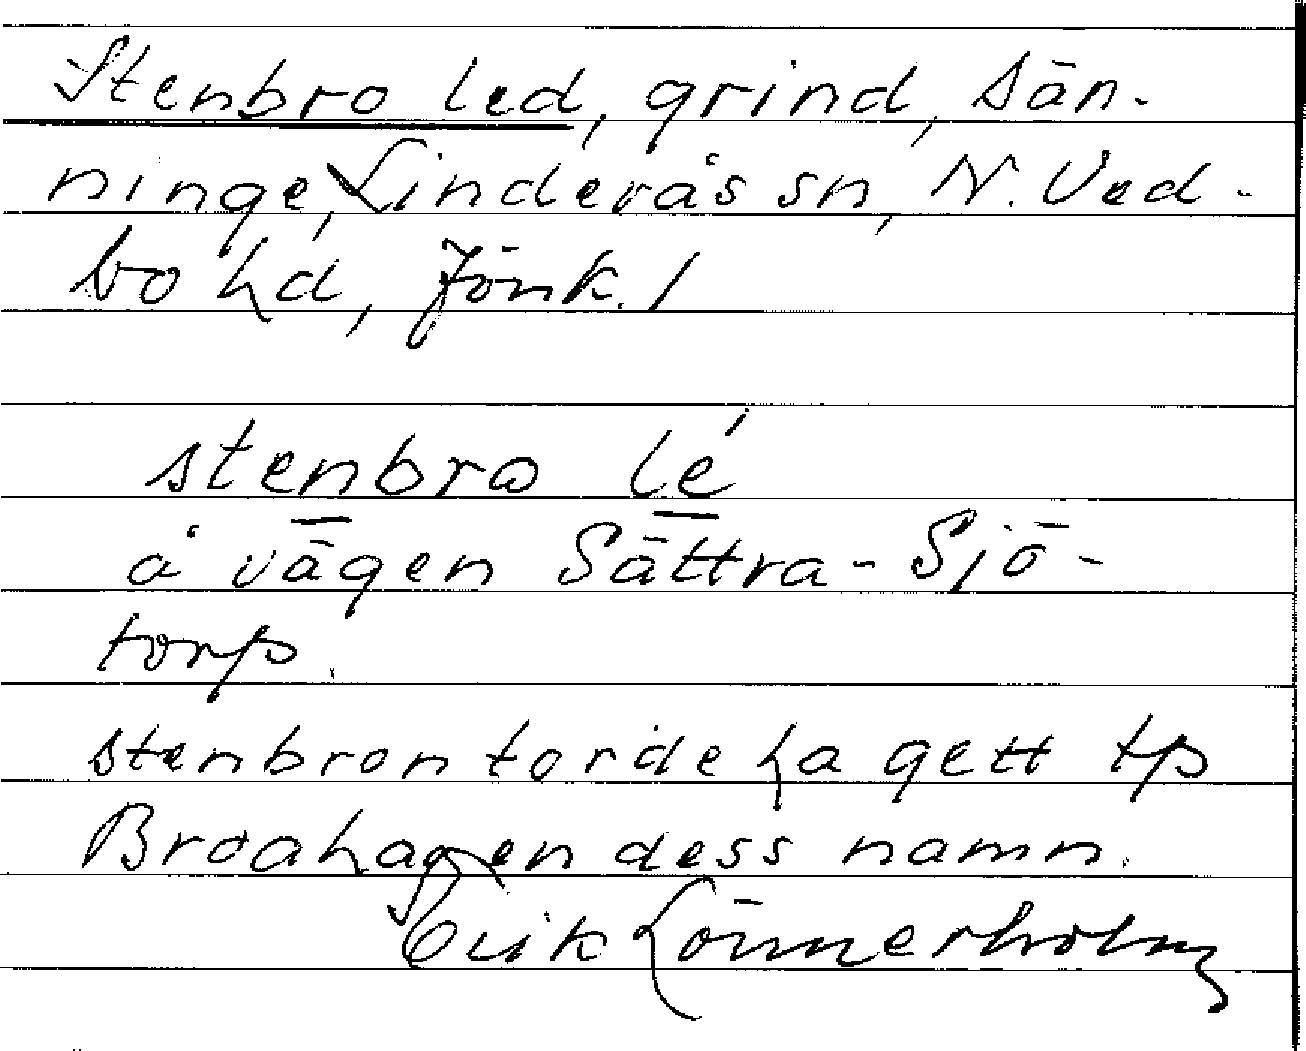 Stenbro led, grind, Sän-
ninge, Linderås sn, N. Ved-
bo hd, Jönk. l
stenbro lé
å vägen Sättra-Sjö-
torp.
stenbron torde ha gett tp
Broahagen dess namn.
Erik Lönnerholm